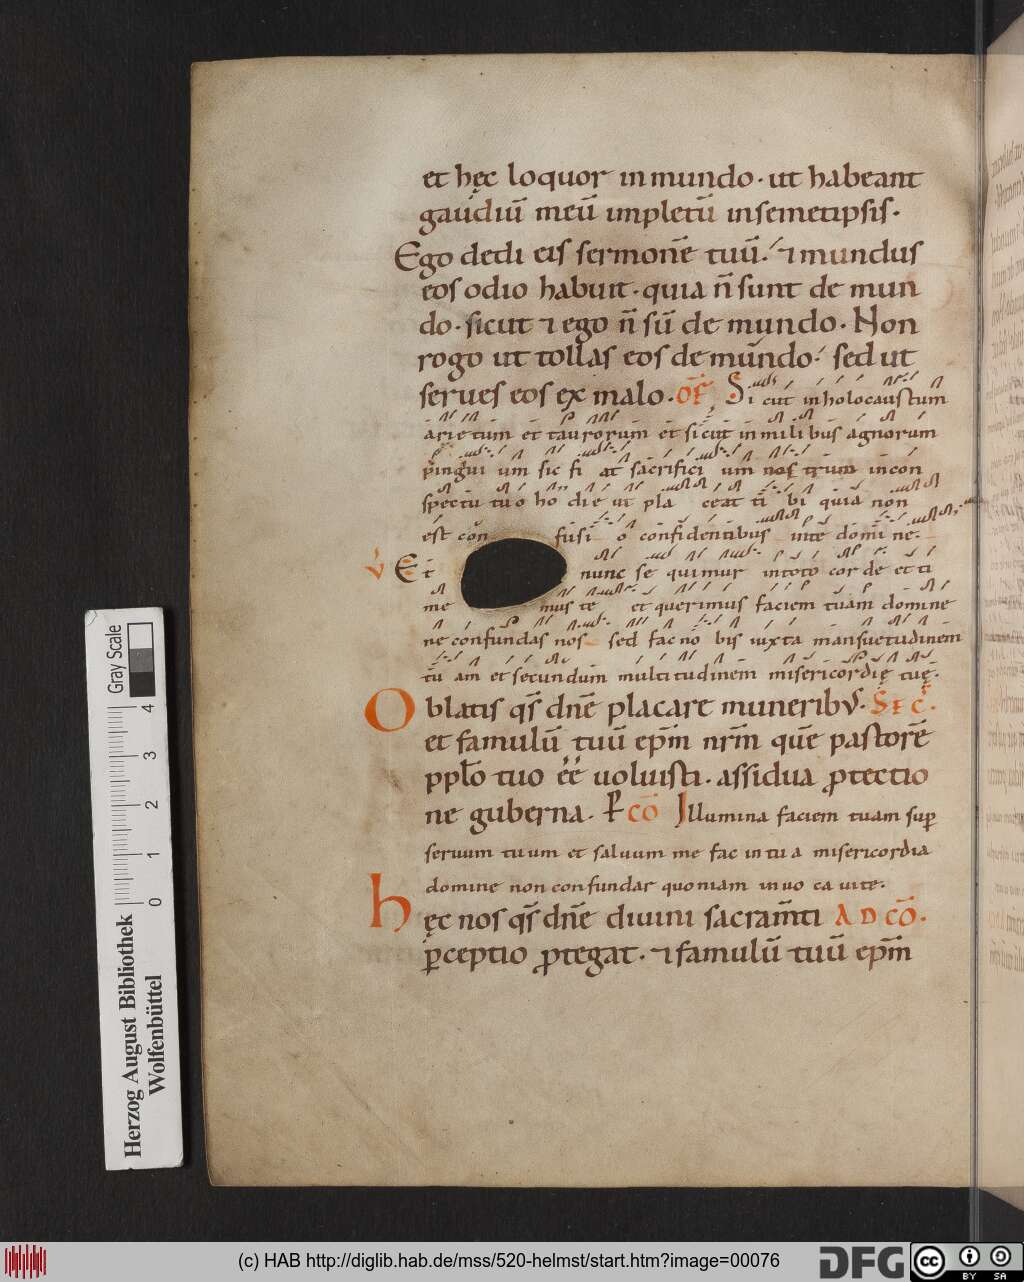 et hęc loquor in mundo · ut habeant
gaudiū meū impletū in semetipsis ·
Ego dedi eis sermonē tuū · ⁊ mundus
eos odio habuit · quia n̄ sunt de mun
do · sicut ⁊ ego n̄ sū de mundo · Non
rogo ut tollas eos de mundo · sed ut
serues eos ex malo · OF̄ Si cut in holocaustum
arietum et taurorum et sicut in milibus agnorum
pingui um sic fi at sacrifici um nostrum in con
spectu tuo ho die ut pla ceat ti bi quia non
est con fusi o confidentibus in te domi ne ·
V Et nunc se quimur in toto cor de et ti
me mus te et querimus faciem tuam domine
ne confundas nos sed fac no bis iuxta mansuetudinem
tu am et secundum multitudinem misericordię tuę ·
Oblatis qs̄ dn̄e placare muneribus · SEC̄ ·
et famulū tuū ep̄m nr̄m quē pastorē
pplo tuo ēē uoluisti · assidua ꝓtectio
ne guberna · CŌ Illumina faciem tuam sup
seruum tuum et saluum me fac in tu a misericordia
domine non confundar quoniam inuo ca ui te ·
Hęc nos qs̄ dn̄e diuini sacram̄ti AD CŌ ·
ꝑceptio ꝓtegat · ⁊ famulū tuū ep̄m
Gray Scale
0 1 2 3 4
Herzog August Bibliothek
Wolfenbüttel
(c) HAB http://diglib.hab.de/mss/520-helmst/start.htm?image=00076
DFG
cc BY SA